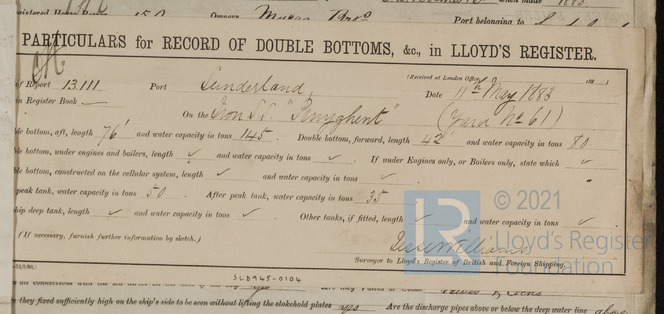 Port belonging to
PARTICULARS for RECORD OF DOUBLE BOTTOMS, &c., in LLOYD'S REGISTER.
(Received at London Office 188 )
of Report 13.111. Port Sunderland, Date 11th May 1883
in Register Book —
On the Iron S.S. "Penyghent" (Yard No 61)
le bottom, aft, length 76' and water capacity in tons 145. Double bottom, forward, length 42' and water capacity in tons 80
le bottom, under engines and boilers, length ✓ and water capacity in tons ✓. If under Engines only, or Boilers only, state which ✓
le bottom, constructed on the cellular system, length ✓ and water capacity in tons ✓ "
peak tank, water capacity in tons 50. After peak tank, water capacity in tons 35
ship deep tank, length ✓ and water capacity in tons ✓. Other tanks, if fitted, length ✓ and water capacity in tons ✓
(If necessary, furnish further information by sketch.)
Surveyor to Lloyd's Register of British and Foreign Shipping.
© 2021
LR Lloyd's Register
Foundation
SLD945-0104
e they fixed sufficiently high on the ship's side to be seen without lifting the stokehold plates yes Are the discharge pipes above or below the deep water line above